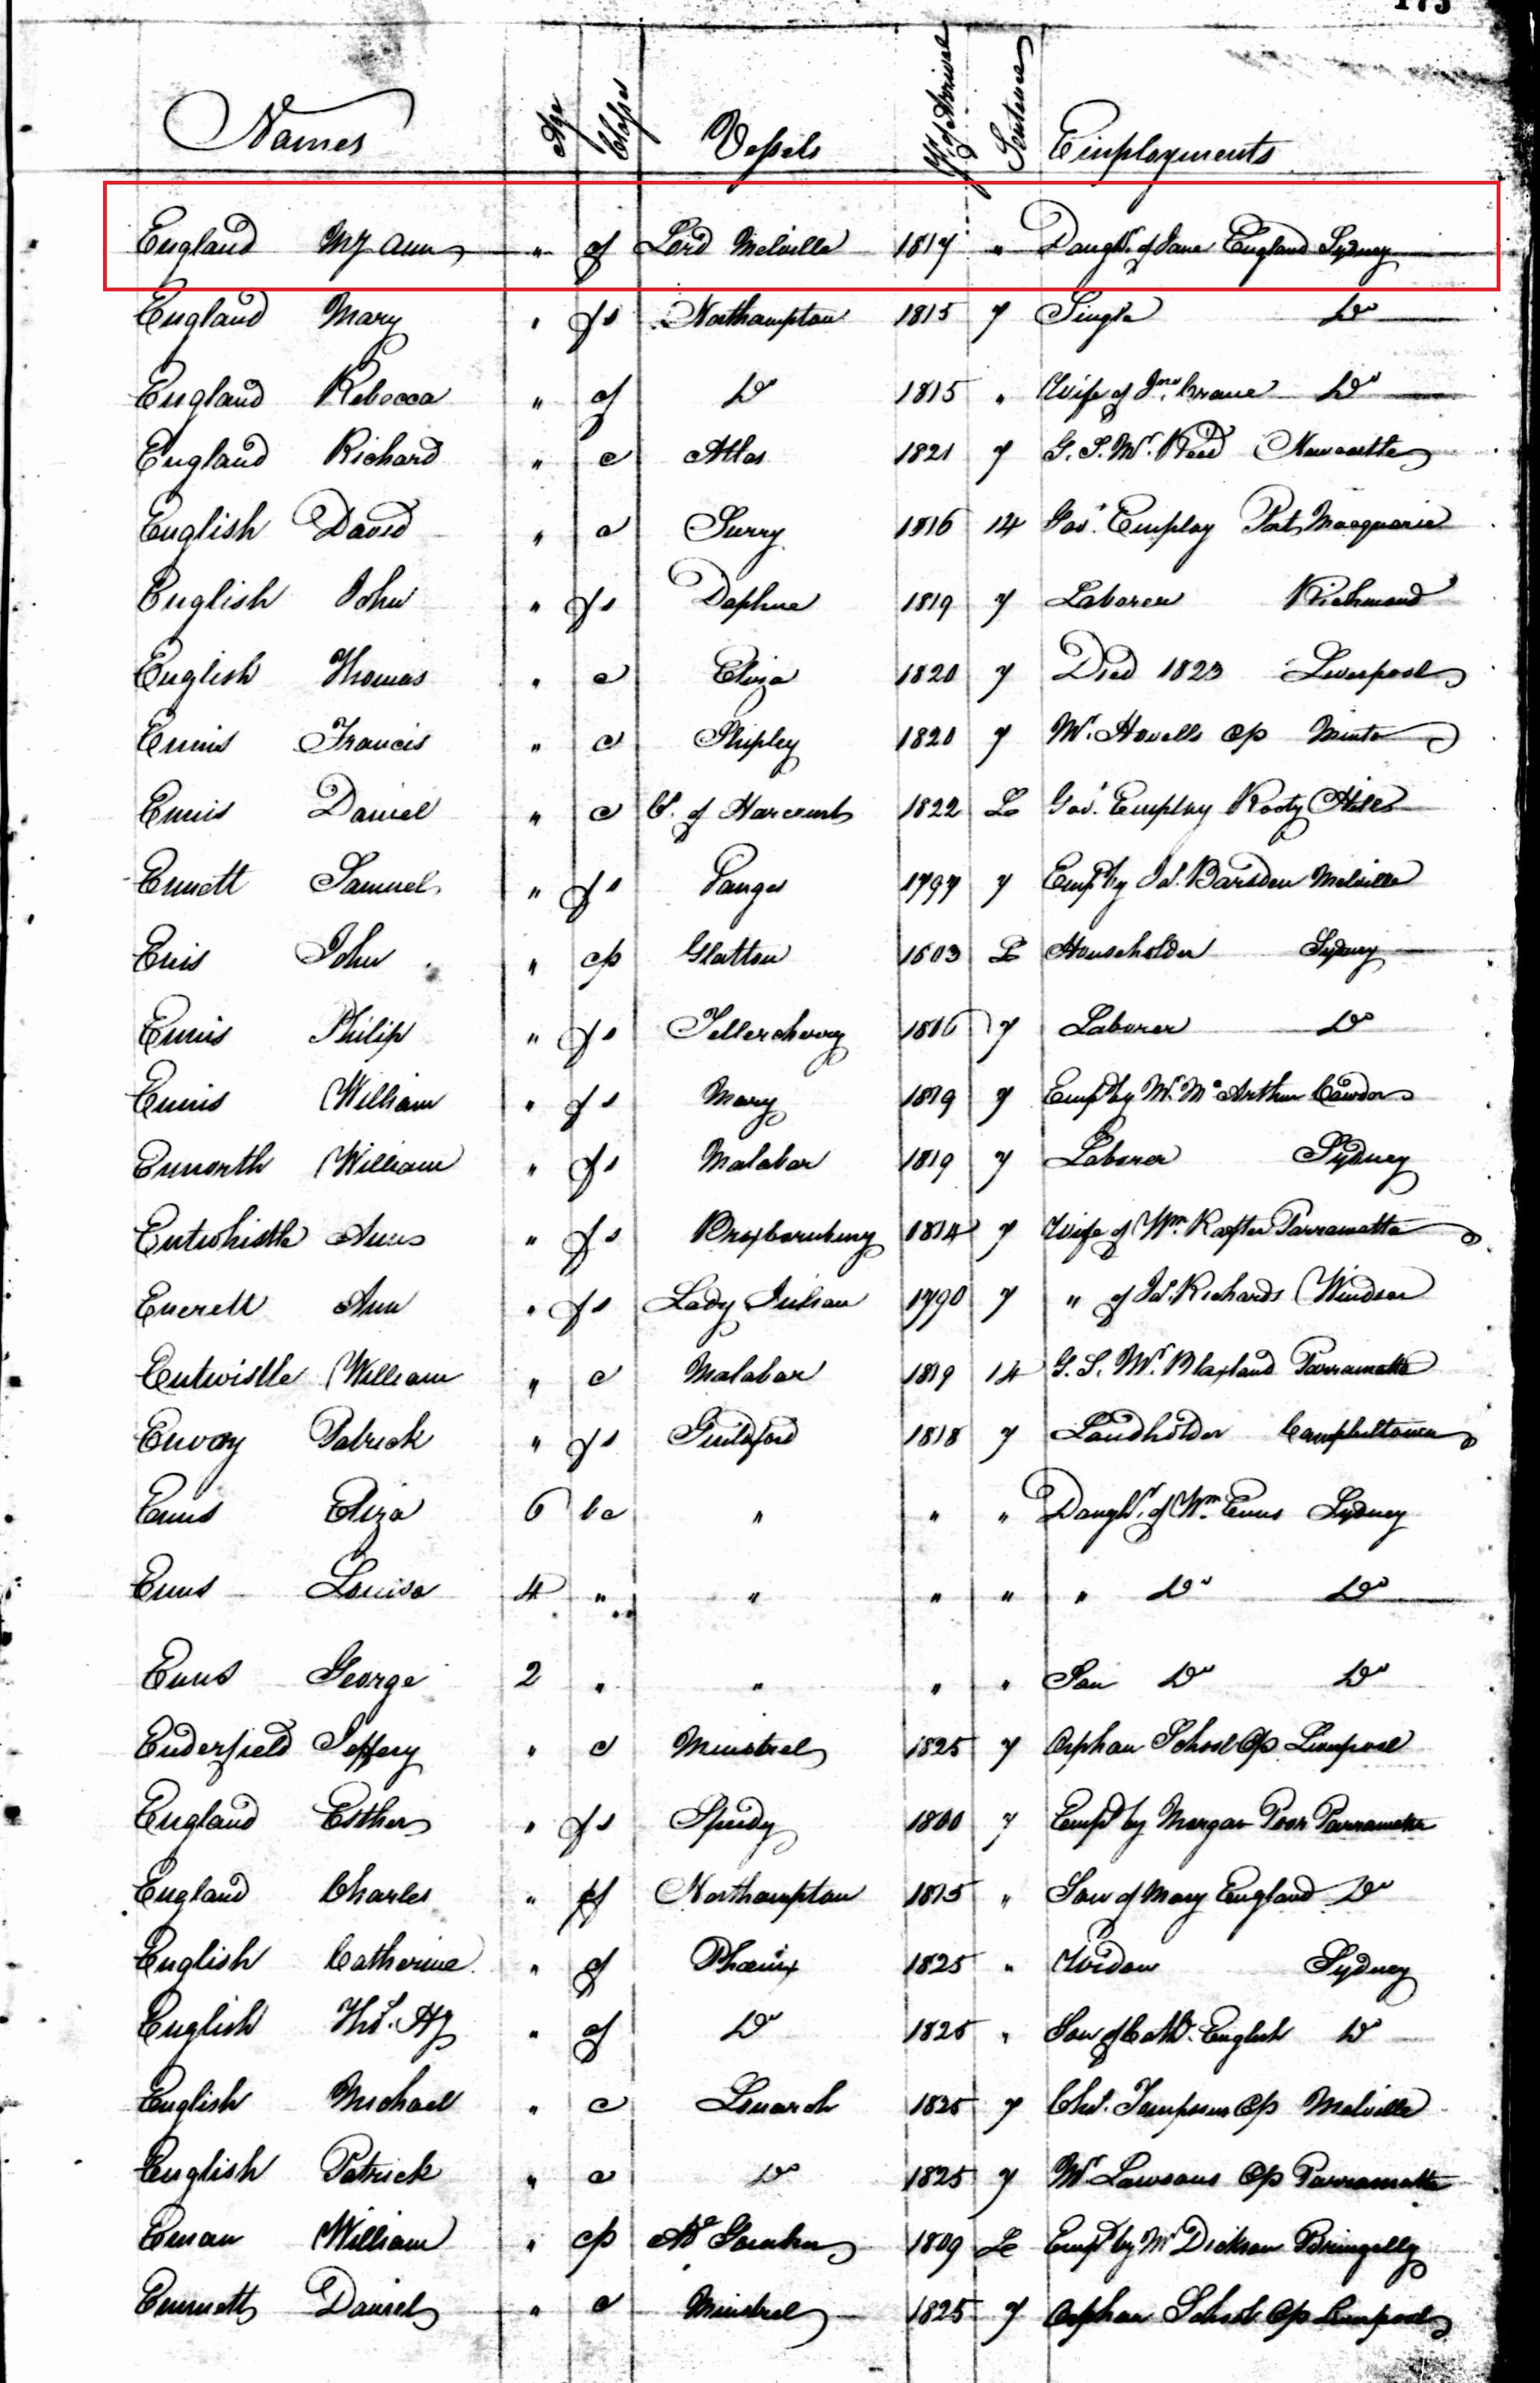 175
Names Age Class Vessels Yr of Arrival Sentence Employments
England My Ann " cf Lord Melville 1817 " Daughr. of Jane England Sydney
England Mary " fs Northampton 1815 7 Single Do
England Rebecca " cf Do 1815 " Wife of Jno. Crane Do
England Richard " c Atlas 1821 7 G. S. Mr. Reid Newcastle
English David " c Surry 1816 14 Govt. Employ Port Macquarie
English John " fs Daphne 1819 7 Laborer Richmond
English Thomas " c Eliza 1820 7 Died 1823 Liverpool
Ennis Francis " c Shipley 1820 7 Mr. Howells op Minto
Ennis Daniel " c C. of Harcourt 1822 L Govt. Employ Rooty Hill
Ennett Samuel " fs Ganges 1797 7 Empd by Jas. Barsden Melville
Enis John " cp Glatton 1803 L Householder Sydney
Ennis Philip " fs Tellercherry 1806 7 Laborer Do
Ennis William " fs Mary 1819 7 Empd by Mr. McArthur Cawdor
Enworth William " fs Malabar 1819 7 Laborer Sydney
Entwhistle Ann " fs Broxbornbury 1814 7 Wife of Wm. Rafter Parramatta
Everett Ann " fs Lady Julian 1790 7 " of Jas. Richards Windsor
Entwistle William " c Malabar 1819 14 G. S. Mr. Blaxland Parramatta
Envoy Patrick " fs Guildford 1818 7 Landholder Campbeltown
Enns Eliza 6 bc " " " Daughr. of Wm. Enns Sydney
Enns Louisa 4 " " " " " Do Do
Enns George 2 " " " " Son Do Do
Enderfield Jeffery " c Minstrel 1825 7 Orphan School Op Liverpool
England Esther " fs Speedy 1800 7 Empd by Morgan Poor Parramatta
England Charles " cf Northampton 1815 " Son of Mary England Do
English Catherine " cf Phœnix 1825 " Widow Sydney
English Ths. Hy " cf Do 1825 " Son of Cath. English Do
English Michael " c Lonarch 1825 7 Chs. Tompson Op Melville
English Patrick " c Do 1825 7 Mr Lawsons Op Parramatta
Enran William " cp Ad Gambier 1809 L Empd by Mr Dickson Bringelly
Emmett Daniel " c Minstrel 1825 7 Orphan School Op Liverpool